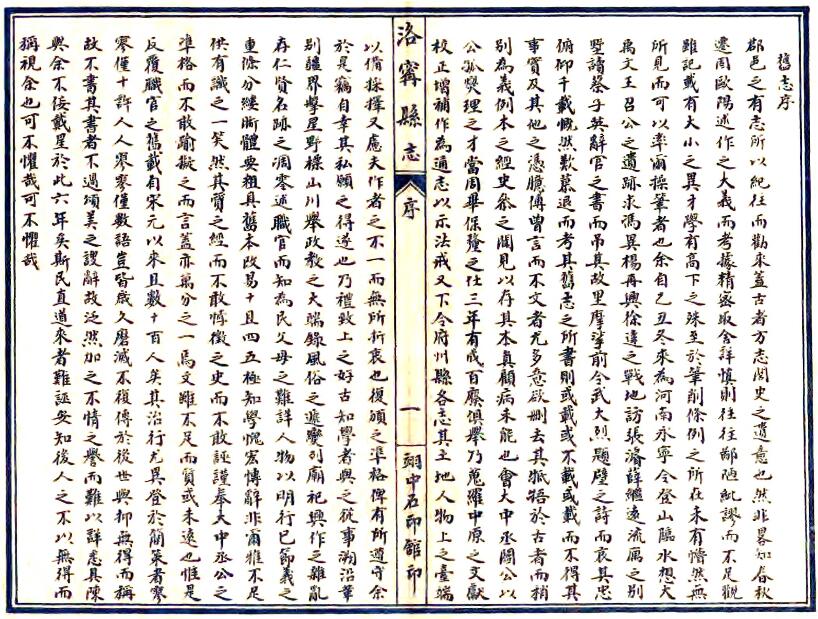 舊志序
郡邑之有志所以紀往而勸來蓋古者方志閭史之遺意也然非畧知春秋
遷固歐陽述作之大義而考據精密取舍詳慎則往往鄙陋紕謬而不足觀
雖記載有大小之異才學有高下之殊至於筆削條例之所在未有懵然無
所見而可以率爾操筆者也余自乙丑冬來為河南永寧令登山臨水想大
禹文王召公之遺跡求馮異楊再興徐達之戰地訪張濬薛繼遠流寓之別
墅讀蔡子英辭官之書而弔其故里摩挲前令武大烈題壁之詩而哀其忠
俯仰千載慨然歎慕退而考其舊志之所書則或載或不載或載而不得其
事實及其他之憑臆傅會言而不文者尤多意欲刪去其牴牾於古者而稍
別為義例本之經史叅之聞見以存其本真顧病未能也會大中丞閻公以
公孤爕理之才當周畢保釐之任三年有成百廢俱舉乃蒐羅中原之文獻
校正增補作為通志以示法戒又下令府州縣各志其土地人物上之臺端
洛寧縣志
序
一
翊中石印館印
以備採擇又慮夫作者之不一而無所折衷也復頒之準格俾有所遵守余
於是竊自幸其私願之得遂也乃禮致上之好古知學者與之從事溯沿革
別疆界擥星野樑山川舉政教之大端錄風俗之遞變列廟祀興作之雜亂
存仁賢名跡之凋零述職官而知為民父母之難詳人物以明行己節義之
重條分縷晰體要粗具舊本改易十且四五極知學愧宏博辭非爾雅不足
供有識之一笑然其質之經而不敢悖徵之史而不敢誣謹奉大中丞公之
準格而不敢踰擬之而言蓋亦萬分之一焉文雖不足而質或未遠也惟是
反覆職官之舊載自宋元以來且數十百人矣其治行尤異登於簡策者寥
寥僅十許人人寥寥僅數語豈皆歲久磨滅不復傳於後世與抑無得而稱
故不書其書者不過頌美之諛辭故泛然加之不情之譽而難以辭悉具陳
與余不佞戴星於此六年矣斯民直道來者難誣安知後人之不以無得而
稱視余也可不懼哉可不懼哉